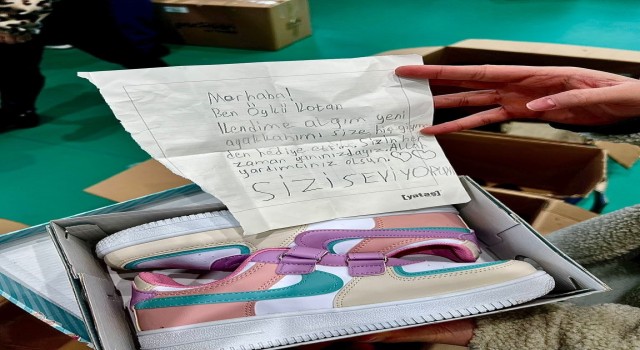 Marhaba!
Ben Öykü Kotan
Kendime aldığım yeni
ayakkabımı size hiç giyme
den hediye ettim. Sizin
zaman yanınızdayız. Allah
yardımcınız olsun.
SİZİ SEVİYORUM
[yataş]